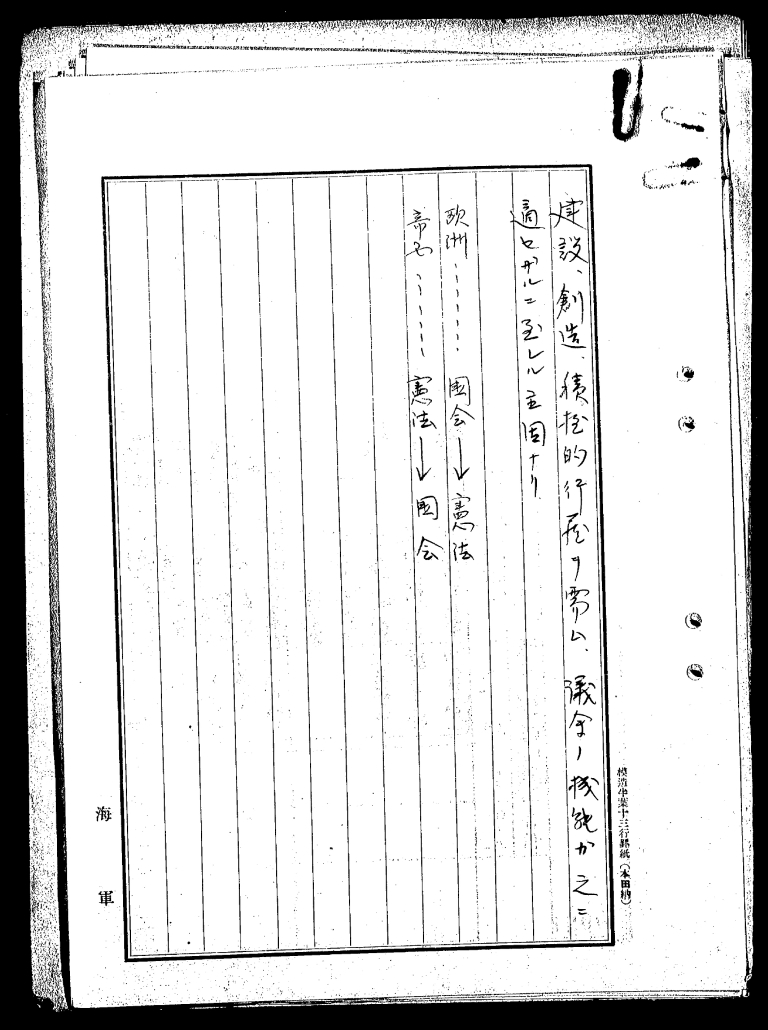 建設、創造、積極的行為ヲ需ム、議会ノ機能ガ之ニ
適セザルニ至レル主因ナリ
欧洲………国会→憲法
帝国………憲法→国会
模造半葉十三行罫紙(本田納)
海軍